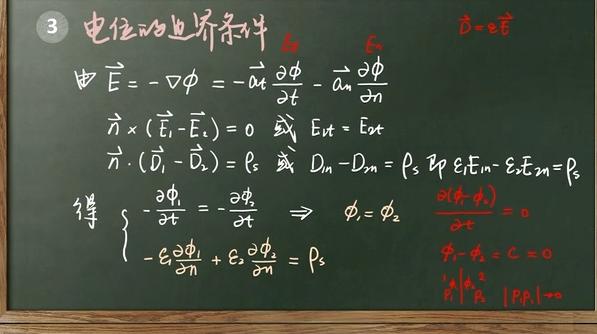 3 电位的边界条件
D⃗ = εE⃗
Et En
由 E⃗ = -∇φ = -a⃗t ∂φ/∂t - a⃗n ∂φ/∂n
n⃗ × (E⃗1 - E⃗2) = 0 或 E1t = E2t
n⃗ · (D⃗1 - D⃗2) = ρs 或 D1n - D2n = ρs 即 ε1E1n - ε2E2n = ρs
得 { -∂φ1/∂t = -∂φ2/∂t ⇒ φ1 = φ2
-ε1 ∂φ1/∂n + ε2 ∂φ2/∂n = ρs
∂(φ1-φ2)/∂t = 0
φ1 - φ2 = C = 0
|P1P2| → 0